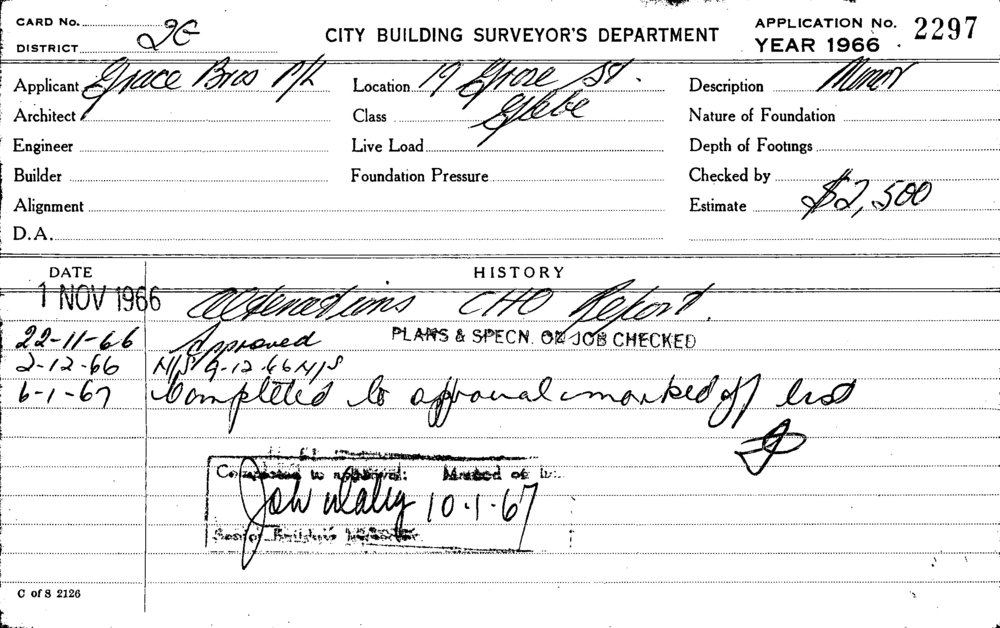 CARD No.
DISTRICT 2G
CITY BUILDING SURVEYOR'S DEPARTMENT
APPLICATION No. 2297
YEAR 1966
Applicant Grace Bros P/L Location 19 Grose St. Description Minor
Architect Class Glebe Nature of Foundation
Engineer Live Load Depth of Footings
Builder Foundation Pressure Checked by
Alignment Estimate $2,500
D.A.
DATE HISTORY
1 NOV 1966 Alterations CHO Report.
22-11-66 Approved PLANS & SPECN. ON JOB CHECKED
2-12-66 N/S 9-12-66 N/S
6-1-67 Completed to approval marked off list
Completed to approval: Marked off
10.1.67
Senior Building Inspector
C of S 2126